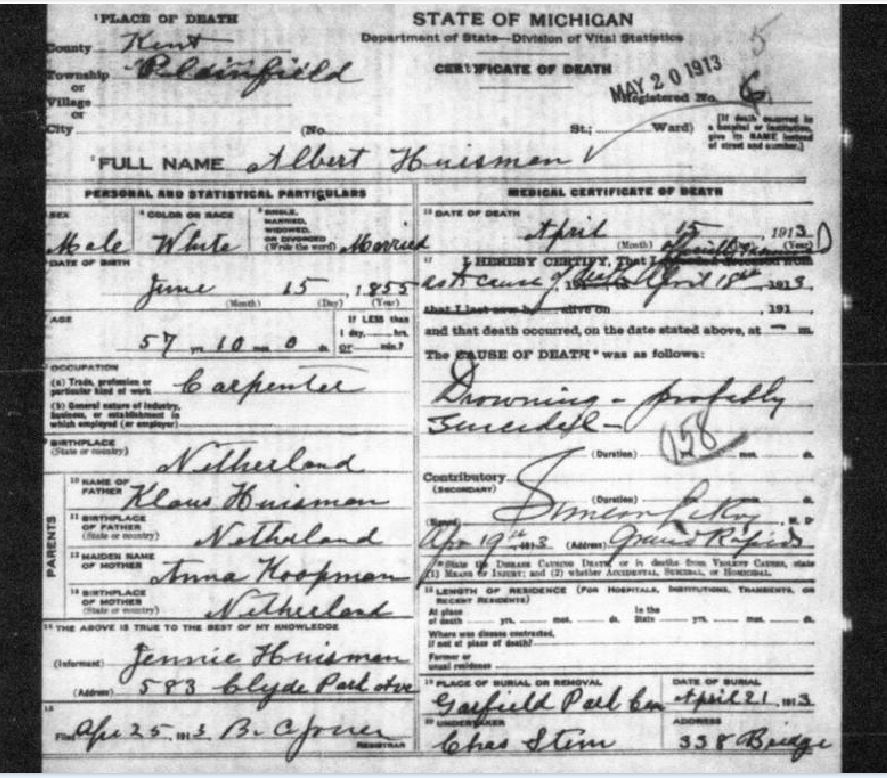 PLACE OF DEATH
STATE OF MICHIGAN
Department of State—Division of Vital Statistics
County Kent
CERTIFICATE OF DEATH
Township Plainfield
or
Village
or
City (No. St.; Ward)
MAY 20 1913
5
Registered No. 6
[If death occurred in a hospital or institution, give its NAME instead of street and number.]
FULL NAME Albert Huisman
PERSONAL AND STATISTICAL PARTICULARS
SEX
Male
COLOR OR RACE
White
SINGLE, MARRIED, WIDOWED, OR DIVORCED (Write the word) Married
DATE OF BIRTH
June 15, 1855
(Month) (Day) (Year)
AGE
57 yrs. 10 mos. 0 ds.
If LESS than
1 day, hrs.
or min.?
OCCUPATION
(a) Trade, profession or particular kind of work Carpenter
(b) General nature of industry, business, or establishment in which employed (or employer)
BIRTHPLACE
(State or country)
Netherland
PARENTS
10 NAME OF FATHER Klaus Huisman
11 BIRTHPLACE OF FATHER (State or country) Netherland
12 MAIDEN NAME OF MOTHER Anna Koopman
BIRTHPLACE OF MOTHER (State or country) Netherland
THE ABOVE IS TRUE TO THE BEST OF MY KNOWLEDGE
(Informant) Jennie Huisman
(Address) 583 Clyde Park Ave
Filed Apr 25, 1913 B. C. REGISTRAR
MEDICAL CERTIFICATE OF DEATH
DATE OF DEATH
April 15, 1913
(Month) (Day) (Year)
I HEREBY CERTIFY, That I
as to cause of death April 18th, 1913
that I last saw h alive on , 191
and that death occurred, on the date stated above, at m.
The CAUSE OF DEATH* was as follows:
Drowning - probably
Suicidal -
(Duration) 158 mos. ds.
Contributory
(SECONDARY)
(Duration) ds.
(Signed) Simeon LeRoy, M. D.
Apr 19th, 1913 (Address) Grand Rapids
*State the DISEASE CAUSING DEATH, or in deaths from VIOLENT CAUSES, state (1) MEANS OF INJURY; and (2) whether ACCIDENTAL, SUICIDAL, or HOMICIDAL.
LENGTH OF RESIDENCE (FOR HOSPITALS, INSTITUTIONS, TRANSIENTS, OR RECENT RESIDENTS)
At place of death yrs. mos. ds. In the State yrs. mos. ds.
Where was disease contracted, if not at place of death?
Former or usual residence
PLACE OF BURIAL OR REMOVAL
Garfield Park Cem
DATE OF BURIAL
April 21, 1913
UNDERTAKER
Chas Stein
ADDRESS
338 Bridge